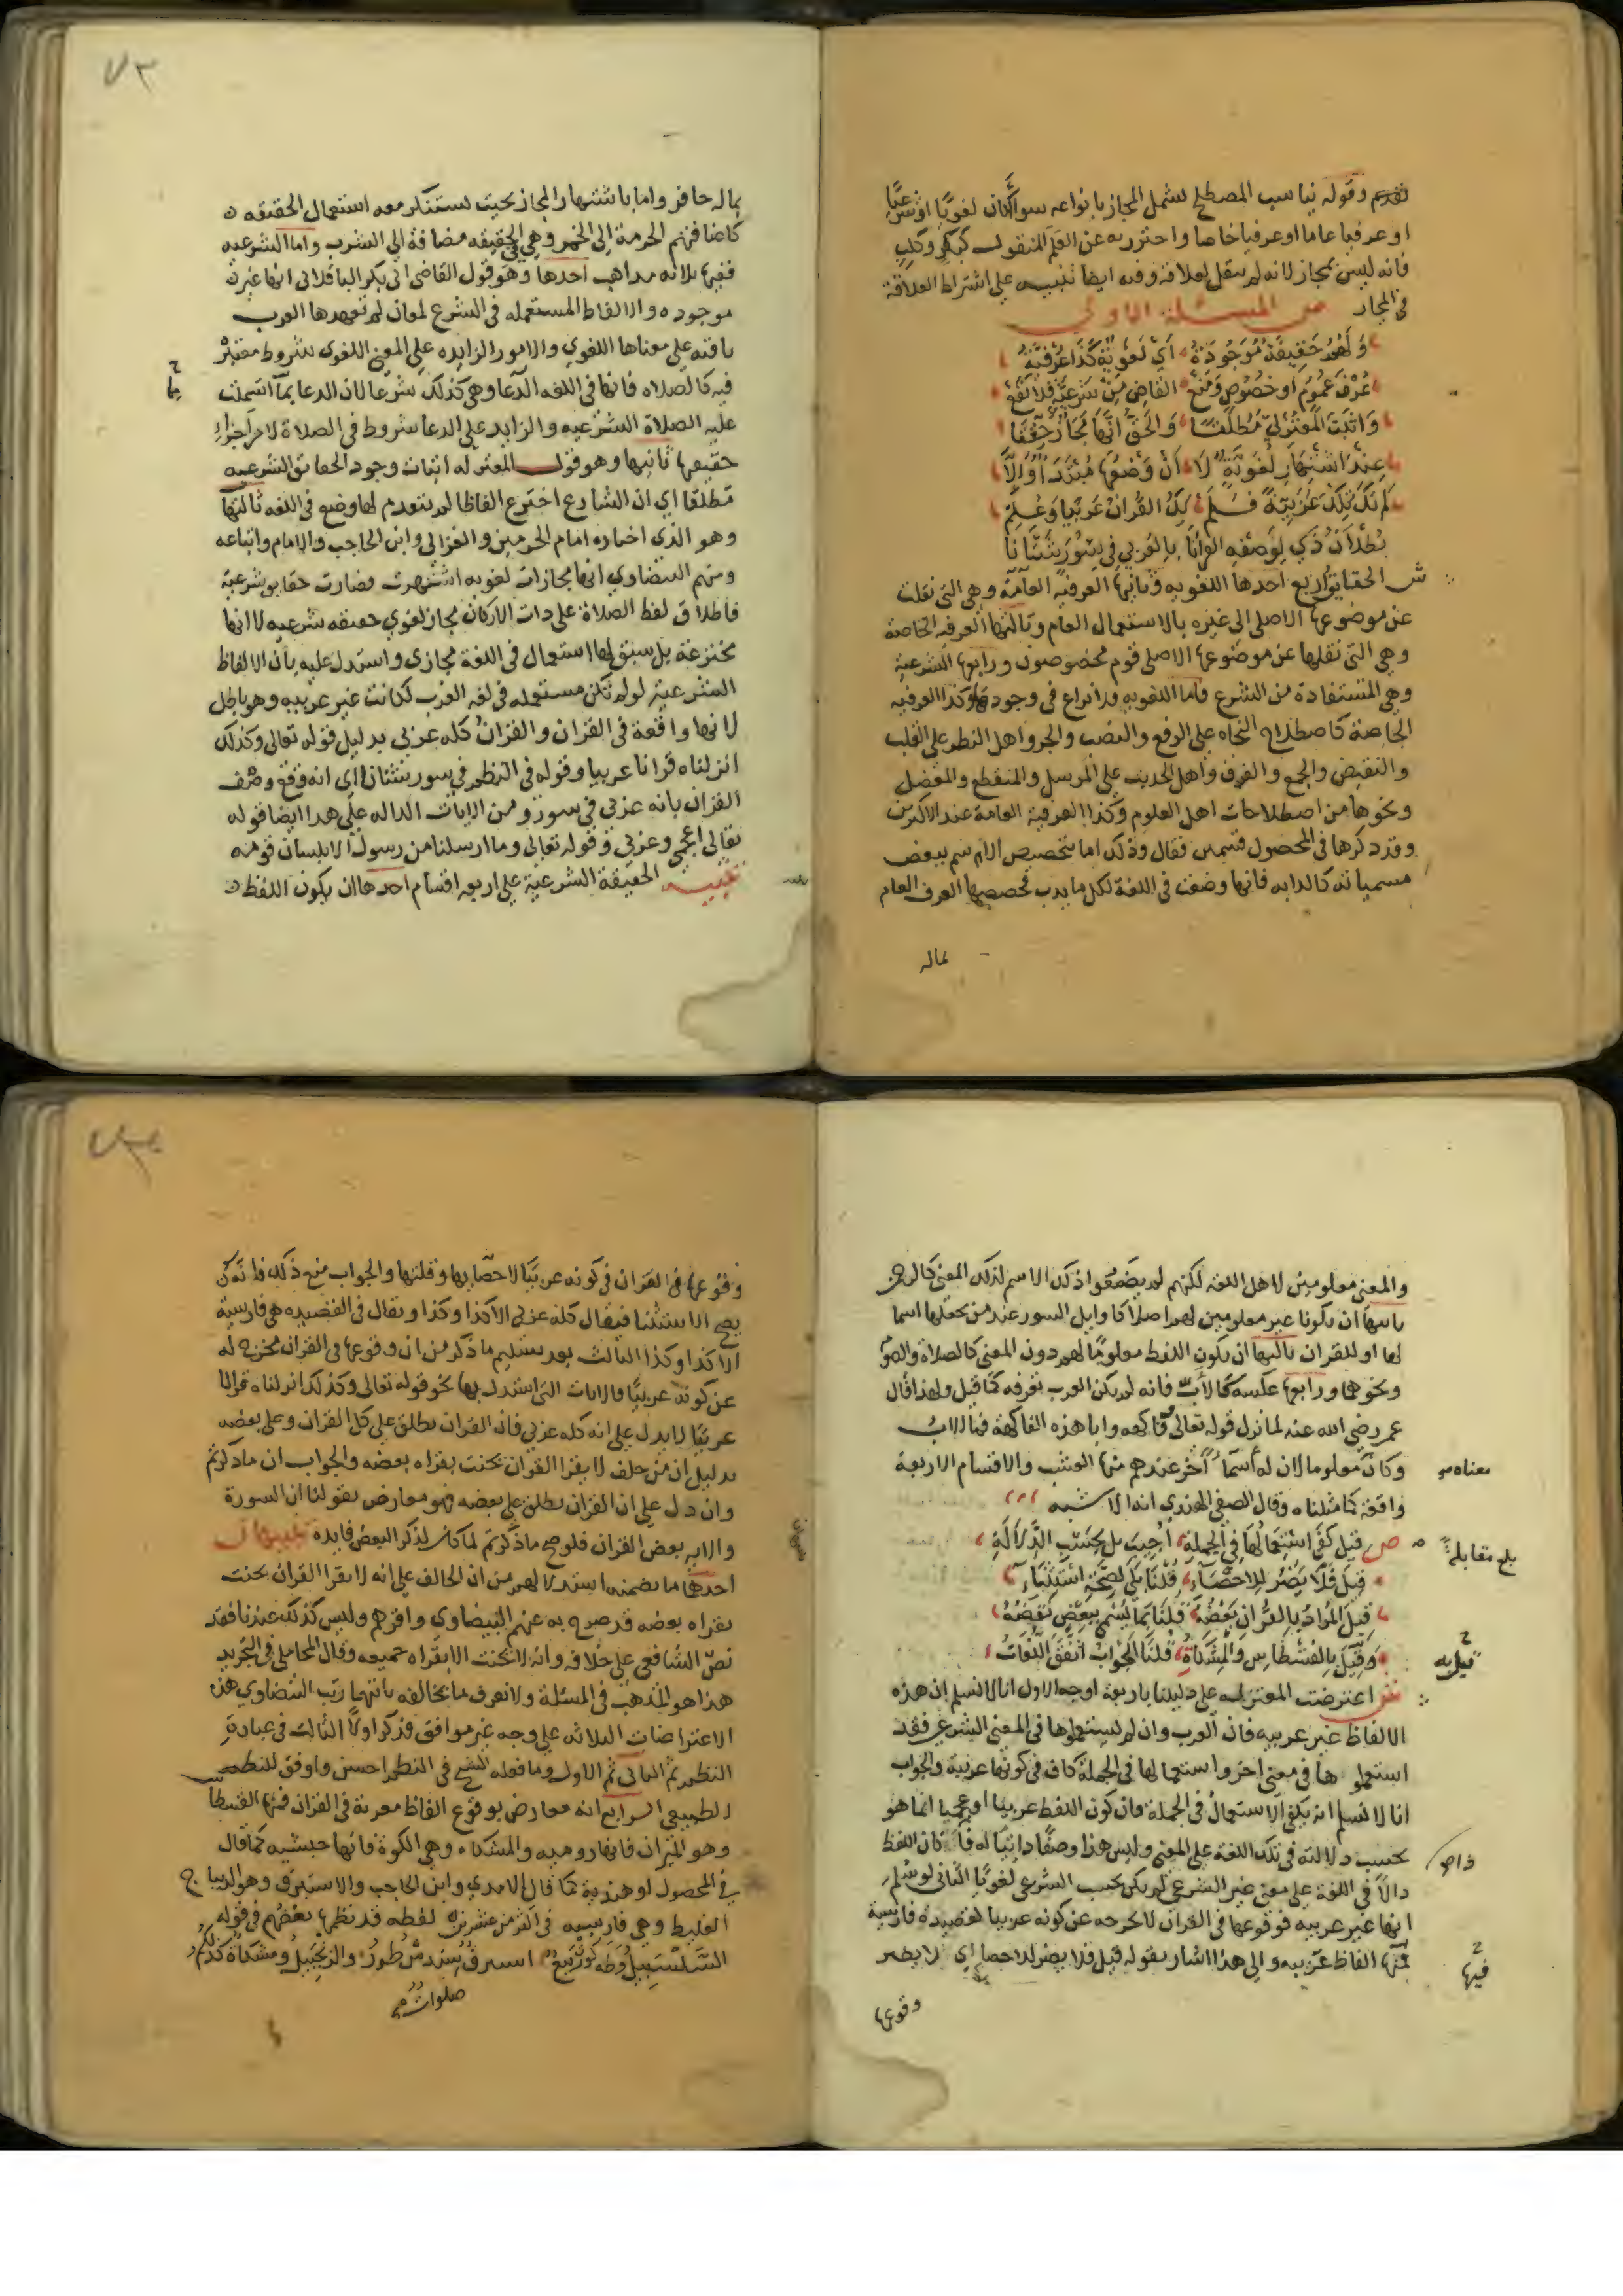 تقدم وقوله يناسب المصطلح يشمل المجاز بانواعه سوا أكان لغويا او شرعيا
او عرفيا عاما او عرفيا خاصا واحترز به عن العلم المنقول كبكر وكلب
فانه ليس بمجاز لانه لم ينقل لعلاقة وفيه ايضا تنبيه على اشتراط العلاقة
في المجاز ص المسئلة الاولى
وَلَهُم حَقِيقَةٌ مَوْجُودَة اَيْ لُغَوِيَّةٌ كَذَا عُرْفِيَّة
عُرْفَ عُمُومٍ او خُصُوصٍ وَمَنَع القاضي مِنْ شَرْعِيَّةٍ فَلا تَقَع
وَاثْبَتَ المُعْتَزِلي مُطْلَقَا وَالحَقُّ انَّهَا مَجَازٌ حُقِّقَا
عِنْدَ اشْتِهَارِ لُغَوِيَّةٍ لَا اَنْ وَضْعُهَا مُبْتَدَأٌ وَالَّا
لَمْ تَكُ تِلْكَ عَرَبِيَّةً فَلَمْ يَكُ القُرَانْ عَرَبِيا وَعُلِمْ
بُطْلَانُ ذَي لِوَصْفِهِ القرانا بالعَرَبي في سُوَرٍ ثِنْتَانَا
ش الحقايق اربع احدها اللغويه وثانيها العرفية العامة وهي التي نقلت
عن موضوعها الاصلي الى غيره بالاستعمال العام وثالثها العرفيه الخاصة
وهي التي نقلها عن موضوعها الاصلي قوم مخصوصون ورابعها الشرعية
وهي المستفادة من الشرع فاما اللغويه فلا نزاع في وجودها وكذا العرفيه
الخاصة كاصطلاح النحاه على الرفع والنصب والجر واهل النظر على القلب
والنقيض والجمع والفرق واهل الحديث على المرسل والمنقطع والمعضل
ونحوها من اصطلاحات اهل العلوم وكذا العرفية العامة عند الاكثرين
وقد ذكرها في المحصول قسمين فقال وذلك اما بتخصيص الاسم ببعض
مسمياته كالدابه فانها وضعت في اللغة لكل ما يدب فخصصها العرف العام
بماله
٧٢
بماله حافر واما باشتهار المجاز بحيث يستنكر معه استعمال الحقيقه
كاضافتهم الحرمة الى الخمر وهي في الحقيقه مضافة الى الشرب واما الشرعيه
ففيها ثلاثة مذاهب احدها وهو قول القاضي ابي بكر الباقلاني انها غير
موجوده والالفاظ المستعمله في الشرع لمعان لم تعهدها العرب
باقية على معناها اللغوي والامور الزايده على المعنى اللغوي شروط معتبرة
فيه كالصلاه فانها في اللغه الدعا وهي كذلك شرعا لان الدعا بما اشتملت
عليه الصلاة الشرعيه والزايد على الدعا شروط في الصلاة لا من اجزاء
حقيقتها ثانيها وهو قول المعتزله اثبات وجود الحقايق الشرعيه
مطلقا اي ان الشارع اخترع الفاظا لم يتقدم لها وضع في اللغه ثالثها
وهو الذي اختاره امام الحرمين والغزالي وابن الحاجب والامام واتباعه
ومنهم البيضاوي انها مجازات لغويه اشتهرت فصارت حقايق شرعية
فاطلاق لفظ الصلاة على ذات الاركان مجاز لغوي حقيقه شرعيه لا انها
مخترعة بل سبق لها استعمال في اللغة مجازي واستدل عليه بان الالفاظ
الشرعية لو لم تكن مستعمله في لغه العرب لكانت غير عربيه وهو باطل
لانها واقعة في القران والقران كله عربي بدليل قوله تعالى وكذلك
انزلناه قرانا عربيا وقوله في النظم في سور ثنتانا اي انه وقع وصف
القران بانه عربي في سور ومن الايات الداله على هذا ايضا قوله
تعالى اعجمي وعربي وقوله تعالى وما ارسلنا من رسول الا بلسان قومه
تنبيه الحقيقة الشرعية على اربعه اقسام احدها ان يكون اللفظ
والمعنى معلومين لاهل اللغه لكنهم لم يضعوا ذلك الاسم لذلك المعنى كالرحمن
ثانيها ان يكونا غير معلومين لهم اصلا كاوايل السور عند من يجعلها اسما
لها او للقران ثالثها ان يكون اللفظ معلوما لهم دون المعنى كالصلاة والصوم
ونحوهما ورابعها عكسه كالأبّ فانه لم يكن العرب تعرفه كما قيل ولهذا قال
عمر رضي الله عنه لما نزل قوله تعالى وفاكهه وابا هذه الفاكهة فما الابّ
وكان معلوما لان له أسمآ أخر عندهم منها العشب والاقسام الاربعة
معناه
واقعة كما مثلناه وقال الصفي الهندي انه الاشبه
ص قِيلَ كَفَى اسْتِعْمَالُهَا في الجُمْلَة أُجِيبَ بل بحَسَبِ الدَّلَالَة
بلغ مقابلة
قِيلَ فَلَا يَضُرُّ لِلاحْصَآءِ قُلْنَا بَلَى لِصِحَّةِ اسْتِثْنَاء
قِيلَ المُرَادُ بِالقُرَانِ بَعْضُهُ قُلْنَا بِمَا يُسْمَى بِبَعْضٍ نَقْضُهُ
وَقِيلَ بِالقِسْطَاسِ وَالمِشْكَاةِ قُلْنَا الجَوَابُ اتَّفَقَ اللُّغَاتُ
ش اعترضت المعتزله على دليلنا باربعة اوجه الاول انا لا نسلم ان هذه
الالفاظ غير عربيه فان العرب وان لم يستعملوها في المعنى الشرعي فقد
استعملوها في معنى اخر واستعمالها في الجملة كاف في كونها عربية والجواب
انا لا نسلم انه يكفي الاستعمال في الجملة فان كون اللفظ عربيا او عجميا انما هو
بحسب دلالته في تلك اللغة على المعنى وليس هذا وصفا ذاتيا له فا كان اللفظ
دالا في اللغة على معنى غير الشرعي لم يكن بحسب الشرعي لغويا الثاني لو سلم
انها غير عربيه فوقوعها في القران لا يخرجه عن كونه عربيا كقصيدة فارسية
فيها الفاظ عربيه والى هذا اشار بقوله قيل فلا يضر للاحصا اي لا يضر
فيها
وقوعها
٧٣
وقوعها في القران في كونه عربيا لاحصايها وقلتها والجواب منع ذلك فانه
يصح الاستثنا فيقال كله عربي الا كذا وكذا ويقال في القصيده هي فارسية
الا كذا وكذا الثالث بعد تسليم ما ذكر من ان وقوعها في القران مخرج له
عن كونه عربيا فالايات التي استدل بها نحو قوله تعالى وكذلك انزلناه قرانا
عربيا لا يدل على انه كله عربي فان القران يطلق على كل القران وعلى بعضه
بدليل ان من حلف لا يقرا القران يحنث بقراه بعضه والجواب ان ما ذكرتم
وان دل على ان القران يطلق على بعضه فهو معارض بقولنا ان السورة
والايه بعض القران فلو صح ما ذكرتم لما كان لذكر البعض فايدة تنبيهان
احدهما ما تضمنه استدلالهم من ان الحالف على انه لا يقرا القران يحنث
بقراه بعضه قد صرح به عنهم البيضاوي واقرهم وليس كذلك عندنا فقد
نصّ الشافعي على خلافه وانه لا يحنث الا بقراه جميعه وقال المحاملي في التجريد
هذا هو المذهب في المسئلة ولا نعرف ما يخالفه ثانيهما رتب البيضاوي هذه
الاعتراضات الثلاثه على وجه غير موافق فذكر اولا الثالث في عبارة
النظم ثم الثاني ثم الاول وما فعله الشيخ في النظم احسن واوفق للنظم
الطبيعي الرابع انه معارض بوقوع الفاظ معربة في القران فمنها القسطاس
وهو الميزان فانها روميه والمشكاه وهي الكوة فانها حبشيه كما قال
في المحصول او هندية كما قال الامدي وابن الحاجب والاستبرق وهو الديباج
الغليظ وهي فارسيه في اكثر من عشرين لفظه قد نظمها بعضهم في قوله
السَّلْسَبِيلُ وَطه كُوِّرَتْ بِيَعٌ استبرقٌ سُندسٌ طُورٌ والزنجبيل ومشكاة
صلوات